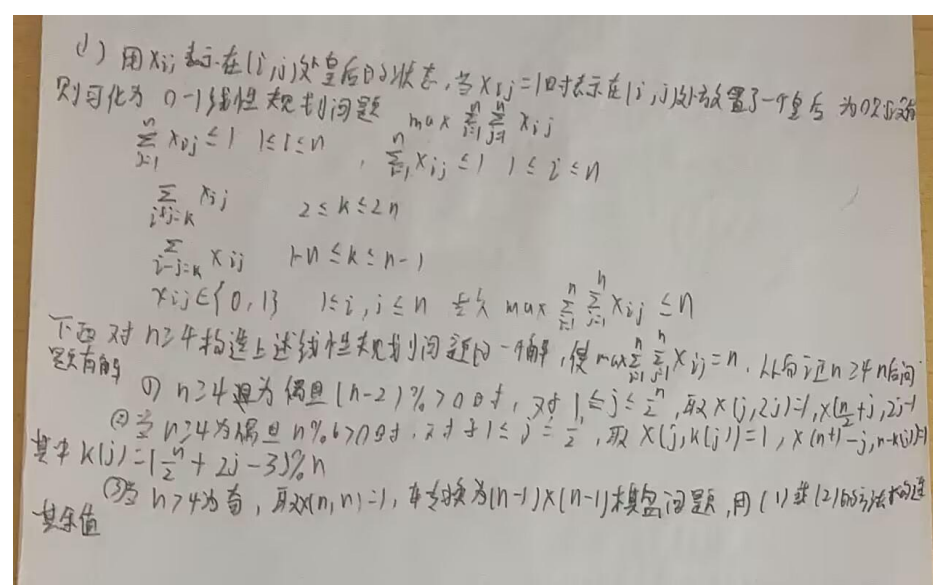 (1) 用 xij 表示在(i,j)处皇后的状态,当xij=1时表示在(i,j)处放置了一个皇后 为0则没有
则可化为 0-1线性规划问题 max ∑_{i=1}^{n} ∑_{j=1}^{n} xij
∑_{j=1}^{n} xij ≤ 1 1≤i≤n , ∑_{i=1}^{n} xij ≤ 1 1≤i≤n
∑_{i+j=k} xij 2≤k≤2n
∑_{i-j=k} xij 1-n≤k≤n-1
xij∈{0,1} 1≤i,j≤n max ∑_{i=1}^{n} ∑_{j=1}^{n} xij ≤ n
下面对 n≥4构造上述线性规划问题的一个解,使 max ∑_{i=1}^{n} ∑_{j=1}^{n} xij = n, 从而证 n≥4 n后问
题有解
① n≥4 为偶且 (n-2)%6>0时, 对 1≤j≤n/2, 取 x(j,2j)=1, x(n/2+j,2j-1
② 当 n≥4为偶且 n%6>0时, 对于1≤j≤n/2, 取 x(j,k(j))=1, x(n+1-j,n-k(j))=1
其中 k(j)=(n/2+2j-3)%n
③当 n>4为奇, 取x(n,n)=1, 转换为(n-1)×(n-1)棋盘问题, 用 (1)或(2)的方法构造
其余值